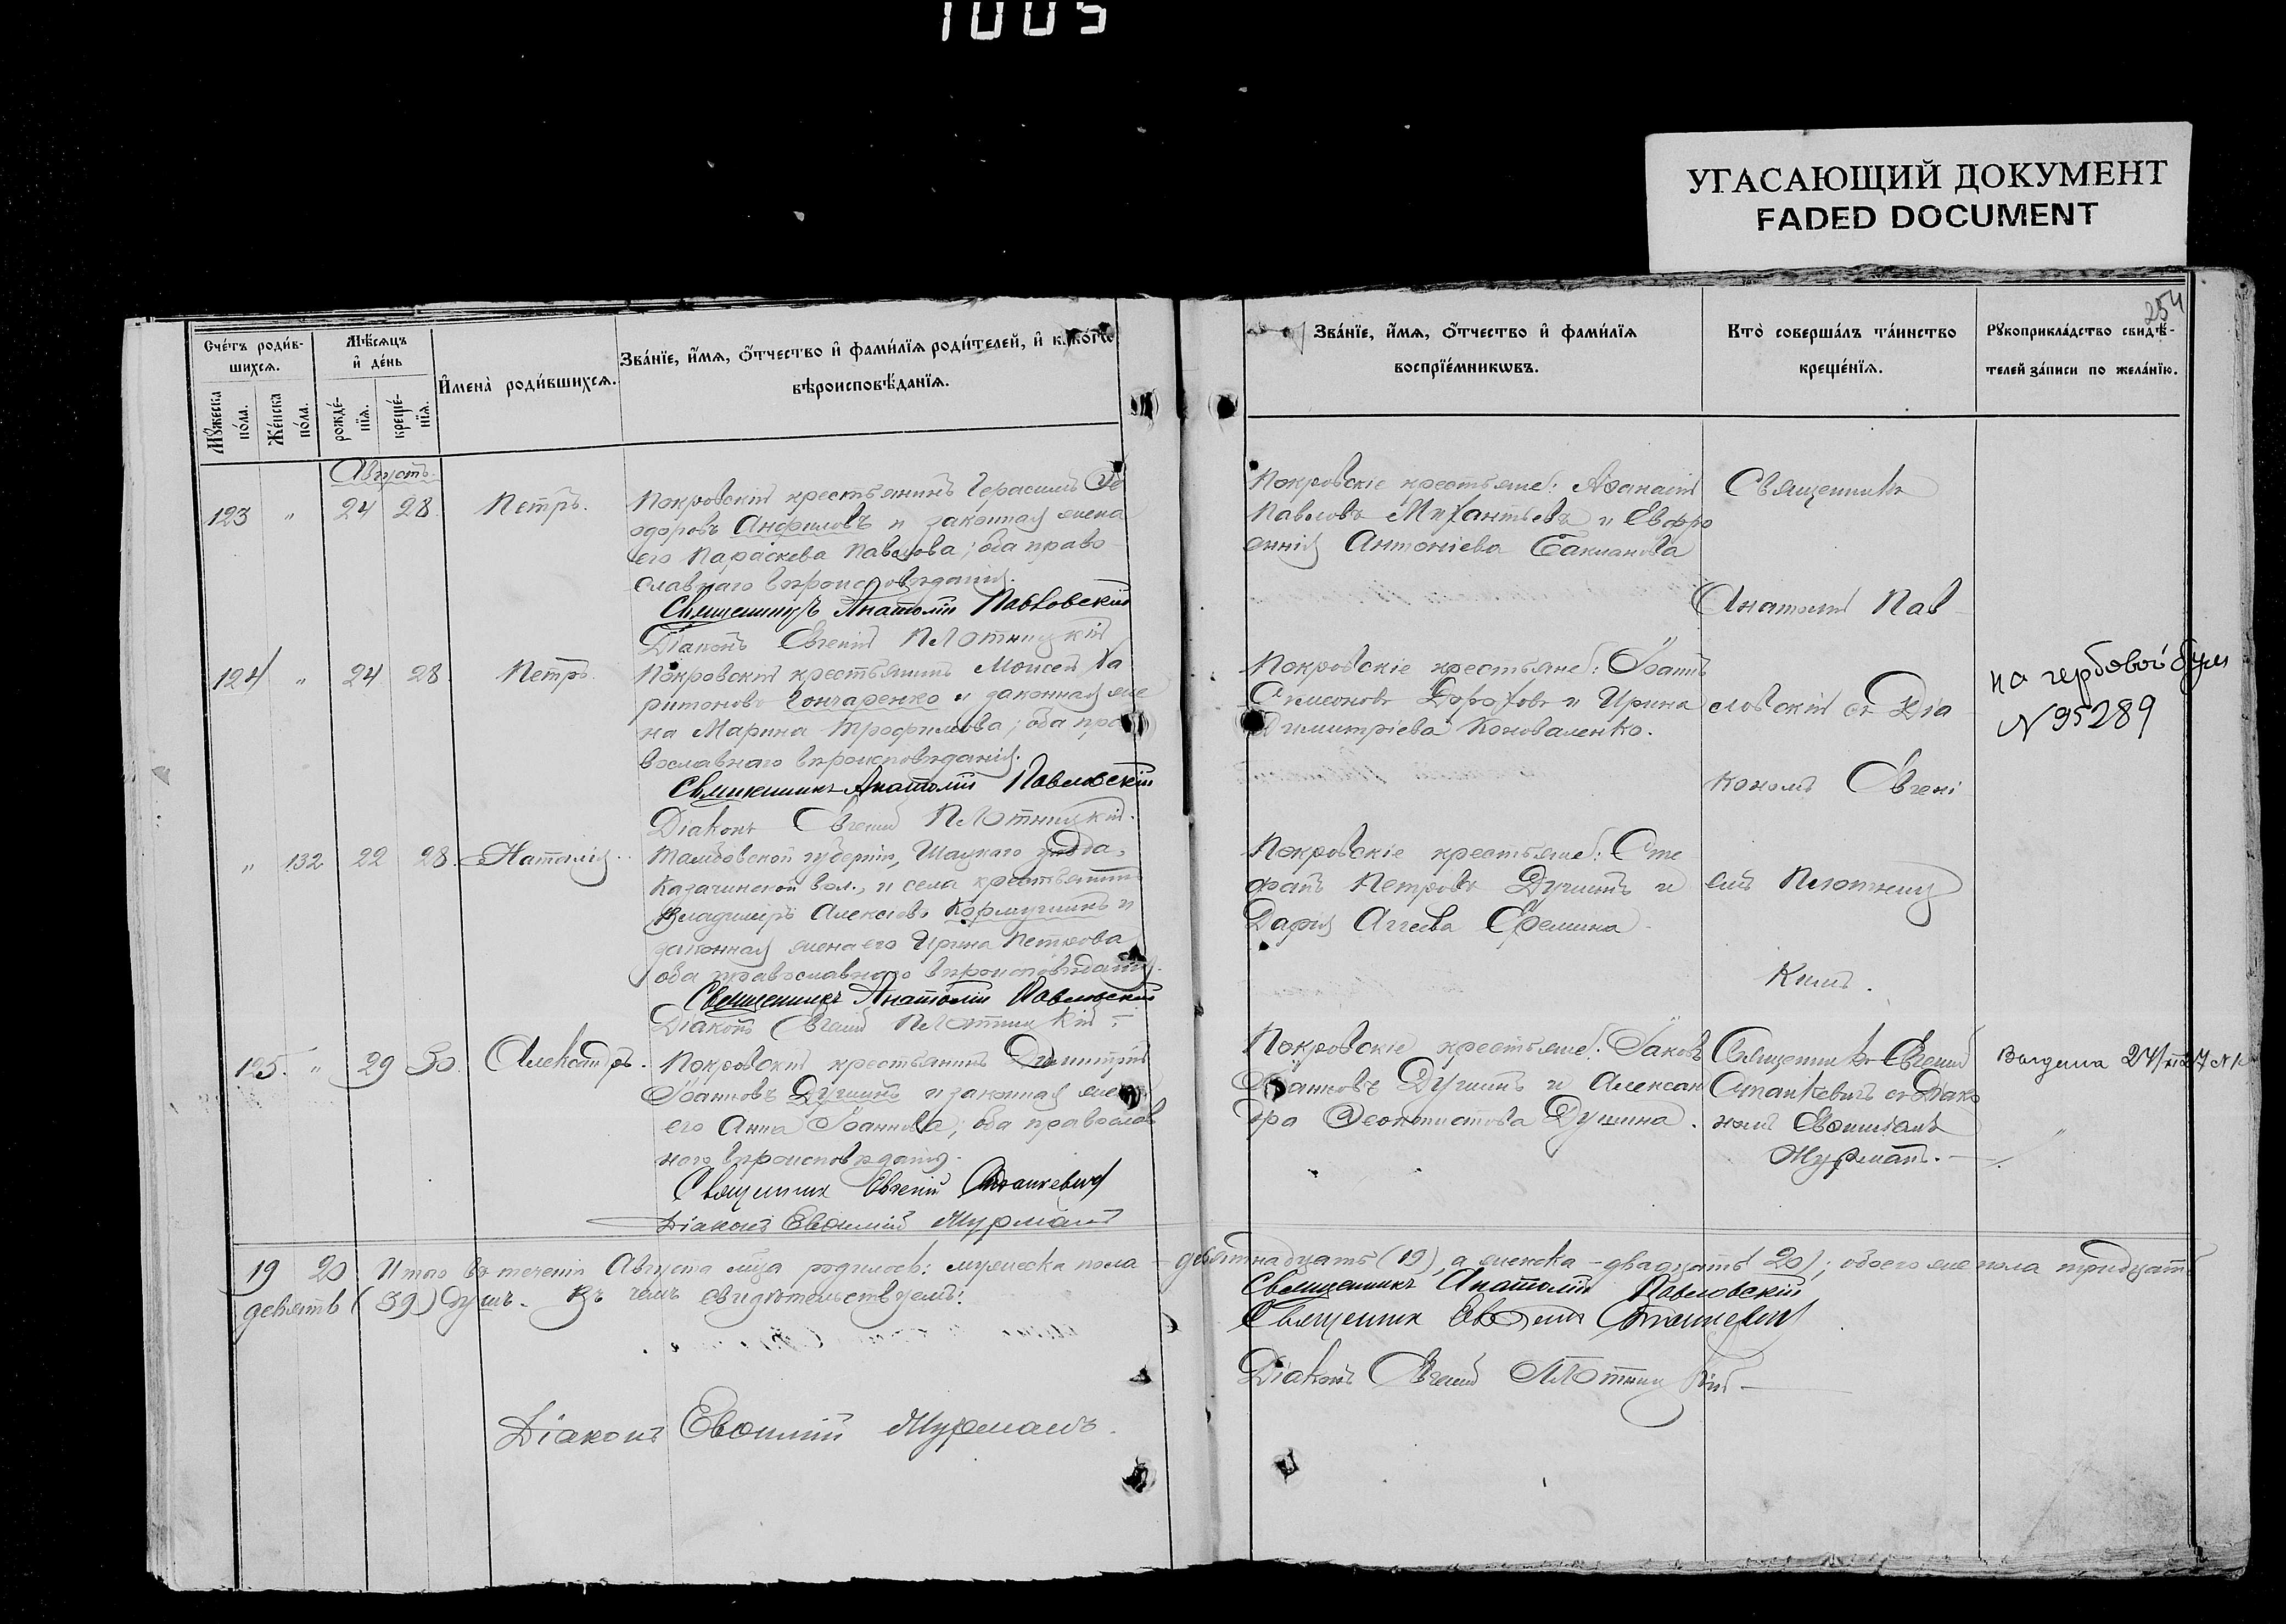 1005
УГАСАЮЩИЙ ДОКУМЕНТ
FADED DOCUMENT
254
Счетъ родив-
шихся.
Мѣсяцъ
и день
Имена родившихся.
Званїе, имя, отчество и фамилїя родителей, и
вѣроисповѣданїя.
Мужеска
пола.
Женска
пола.
рожде-
нїя.
креще-
нїя.
Званїе, имя, отчество и фамилїя
воспрїемниковъ.
Кто совершалъ таинство
крещенїя.
Рукоприкладство свидѣ-
телей записи по желанїю.
Августъ.
123 " 24 28. Петръ.
Покровскій крестьянинъ Герасимъ Ѳе
одоровъ Анфиловъ и законная жена
его Параскева Павлова; оба право
славнаго вѣроисповѣданія.
Священникъ Анатолій Павловскій
Діаконъ Евгеній Плотницкій
Покровскіе крестьяне: Аѳанасій
Павловъ и Евфро
синія Антоніева Бакланова
Священникъ
Анатолій Пав
124 " 24 28. Петръ.
Покровскій крестьянинъ Моисей Ха
ритоновъ Гончаренко и законная же
на Марина Трофимова; оба пра
вославнаго вѣроисповѣданія.
Священникъ Анатолій Павловскій
Діаконъ Евгеній Плотницкій.
Покровскіе крестьяне: Іоаннъ
Симеоновъ Дороховъ и Ирина
Димитріева Коноваленко.
ловскій съ Діа
кономъ Евгені
на гербовой бум
N 95289
" 132 22 28. Наталія.
Тамбовской губерніи, Шацкаго уѣзда,
Казачинской вол., и села крестьянинъ
Владиміръ Алексіевъ Кормушинъ и
законная жена его Ирина Петрова
оба православнаго вѣроисповѣданія.
Священникъ Анатолій Павловскій
Діаконъ Евгеній Плотницкій
Покровскіе крестьяне: Сте
фанъ Петровъ Душинъ и
Дарія Аггеева Еремина
емъ Плотниц
кимъ.
125. " 29 30. Александръ.
Покровскій крестьянинъ Димитрій
Іоанновъ Душинъ и законная жена
его Анна Іоаннова; оба православ
наго вѣроисповѣданія.
Священникъ Евгеній Станкевичъ
Діаконъ Евѳимій Журманъ
Покровскіе крестьяне: Іаковъ
Іоанновъ Душинъ и Алексан
дра Ѳеоктистова Душина.
Священникъ Евгеній
Станкевичъ съ Діако
номъ Евѳиміемъ
Журманъ.
Выдана
19 20 Итого въ теченіи Августа м-ца родилось: мужеска пола – девятнадцать (19), а женска – двадцать (20); обоего же пола тридцать
девять (39) душъ. Въ чемъ свидѣтельствуемъ:
Священникъ Анатолій Павловскій
Священникъ Евгеній Станкевичъ
Діаконъ Евгеній Плотницкій
Діаконъ Евѳимій Журманъ.